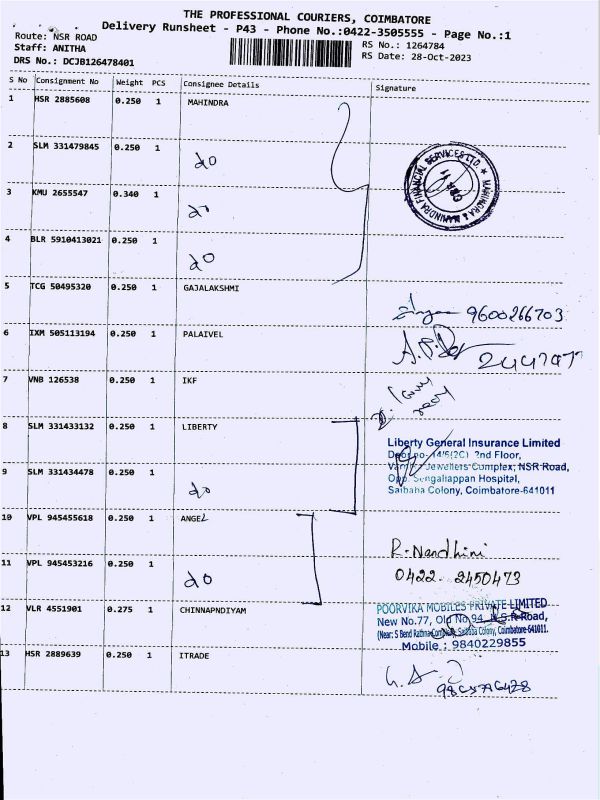 THE PROFESSIONAL COURIERS, COIMBATORE
Delivery Runsheet - P43 - Phone No.:0422-3505555 - Page No.:1
Route: NSR ROAD
Staff: ANITHA
DRS No.: DCJB126478401
RS No.: 1264784
RS Date: 28-Oct-2023
S No Consignment No Weight PCS Consignee Details Signature
1 HSR 2885608 0.250 1 MAHINDRA
2 SLM 331479845 0.250 1 do
MAHINDRA & MAHINDRA FINANCIAL SERVICES LTD. ★
3 KMU 2655547 0.340 1 do
4 BLR 5910413021 0.250 1 do
5 TCG 50495320 0.250 1 GAJALAKSHMI
9600266703
6 IXM 505113194 0.250 1 PALAIVEL
7 VNB 126538 0.250 1 IKF
8 SLM 331433132 0.250 1 LIBERTY
Liberty General Insurance Limited
Door no- 14/5(2C) 2nd Floor,
Jewellers Complex, NSR Road,
9 SLM 331434478 0.250 1 do
Opp. Sengaliappan Hospital,
Saibaba Colony, Coimbatore-641011
10 VPL 945455618 0.250 1 ANGEL
R. Nandhini
11 VPL 945453216 0.250 1 do
0422 2450473
12 VLR 4551901 0.275 1 CHINNAPNDIYAM
POORVIKA MOBILES PRIVATE LIMITED
New No.77, Old No.94, N.S.R Road,
(Near: S Bend Rathna Complex, Saibaba Colony, Coimbatore-641011.
Mobile : 9840229855
13 HSR 2889639 0.250 1 ITRADE